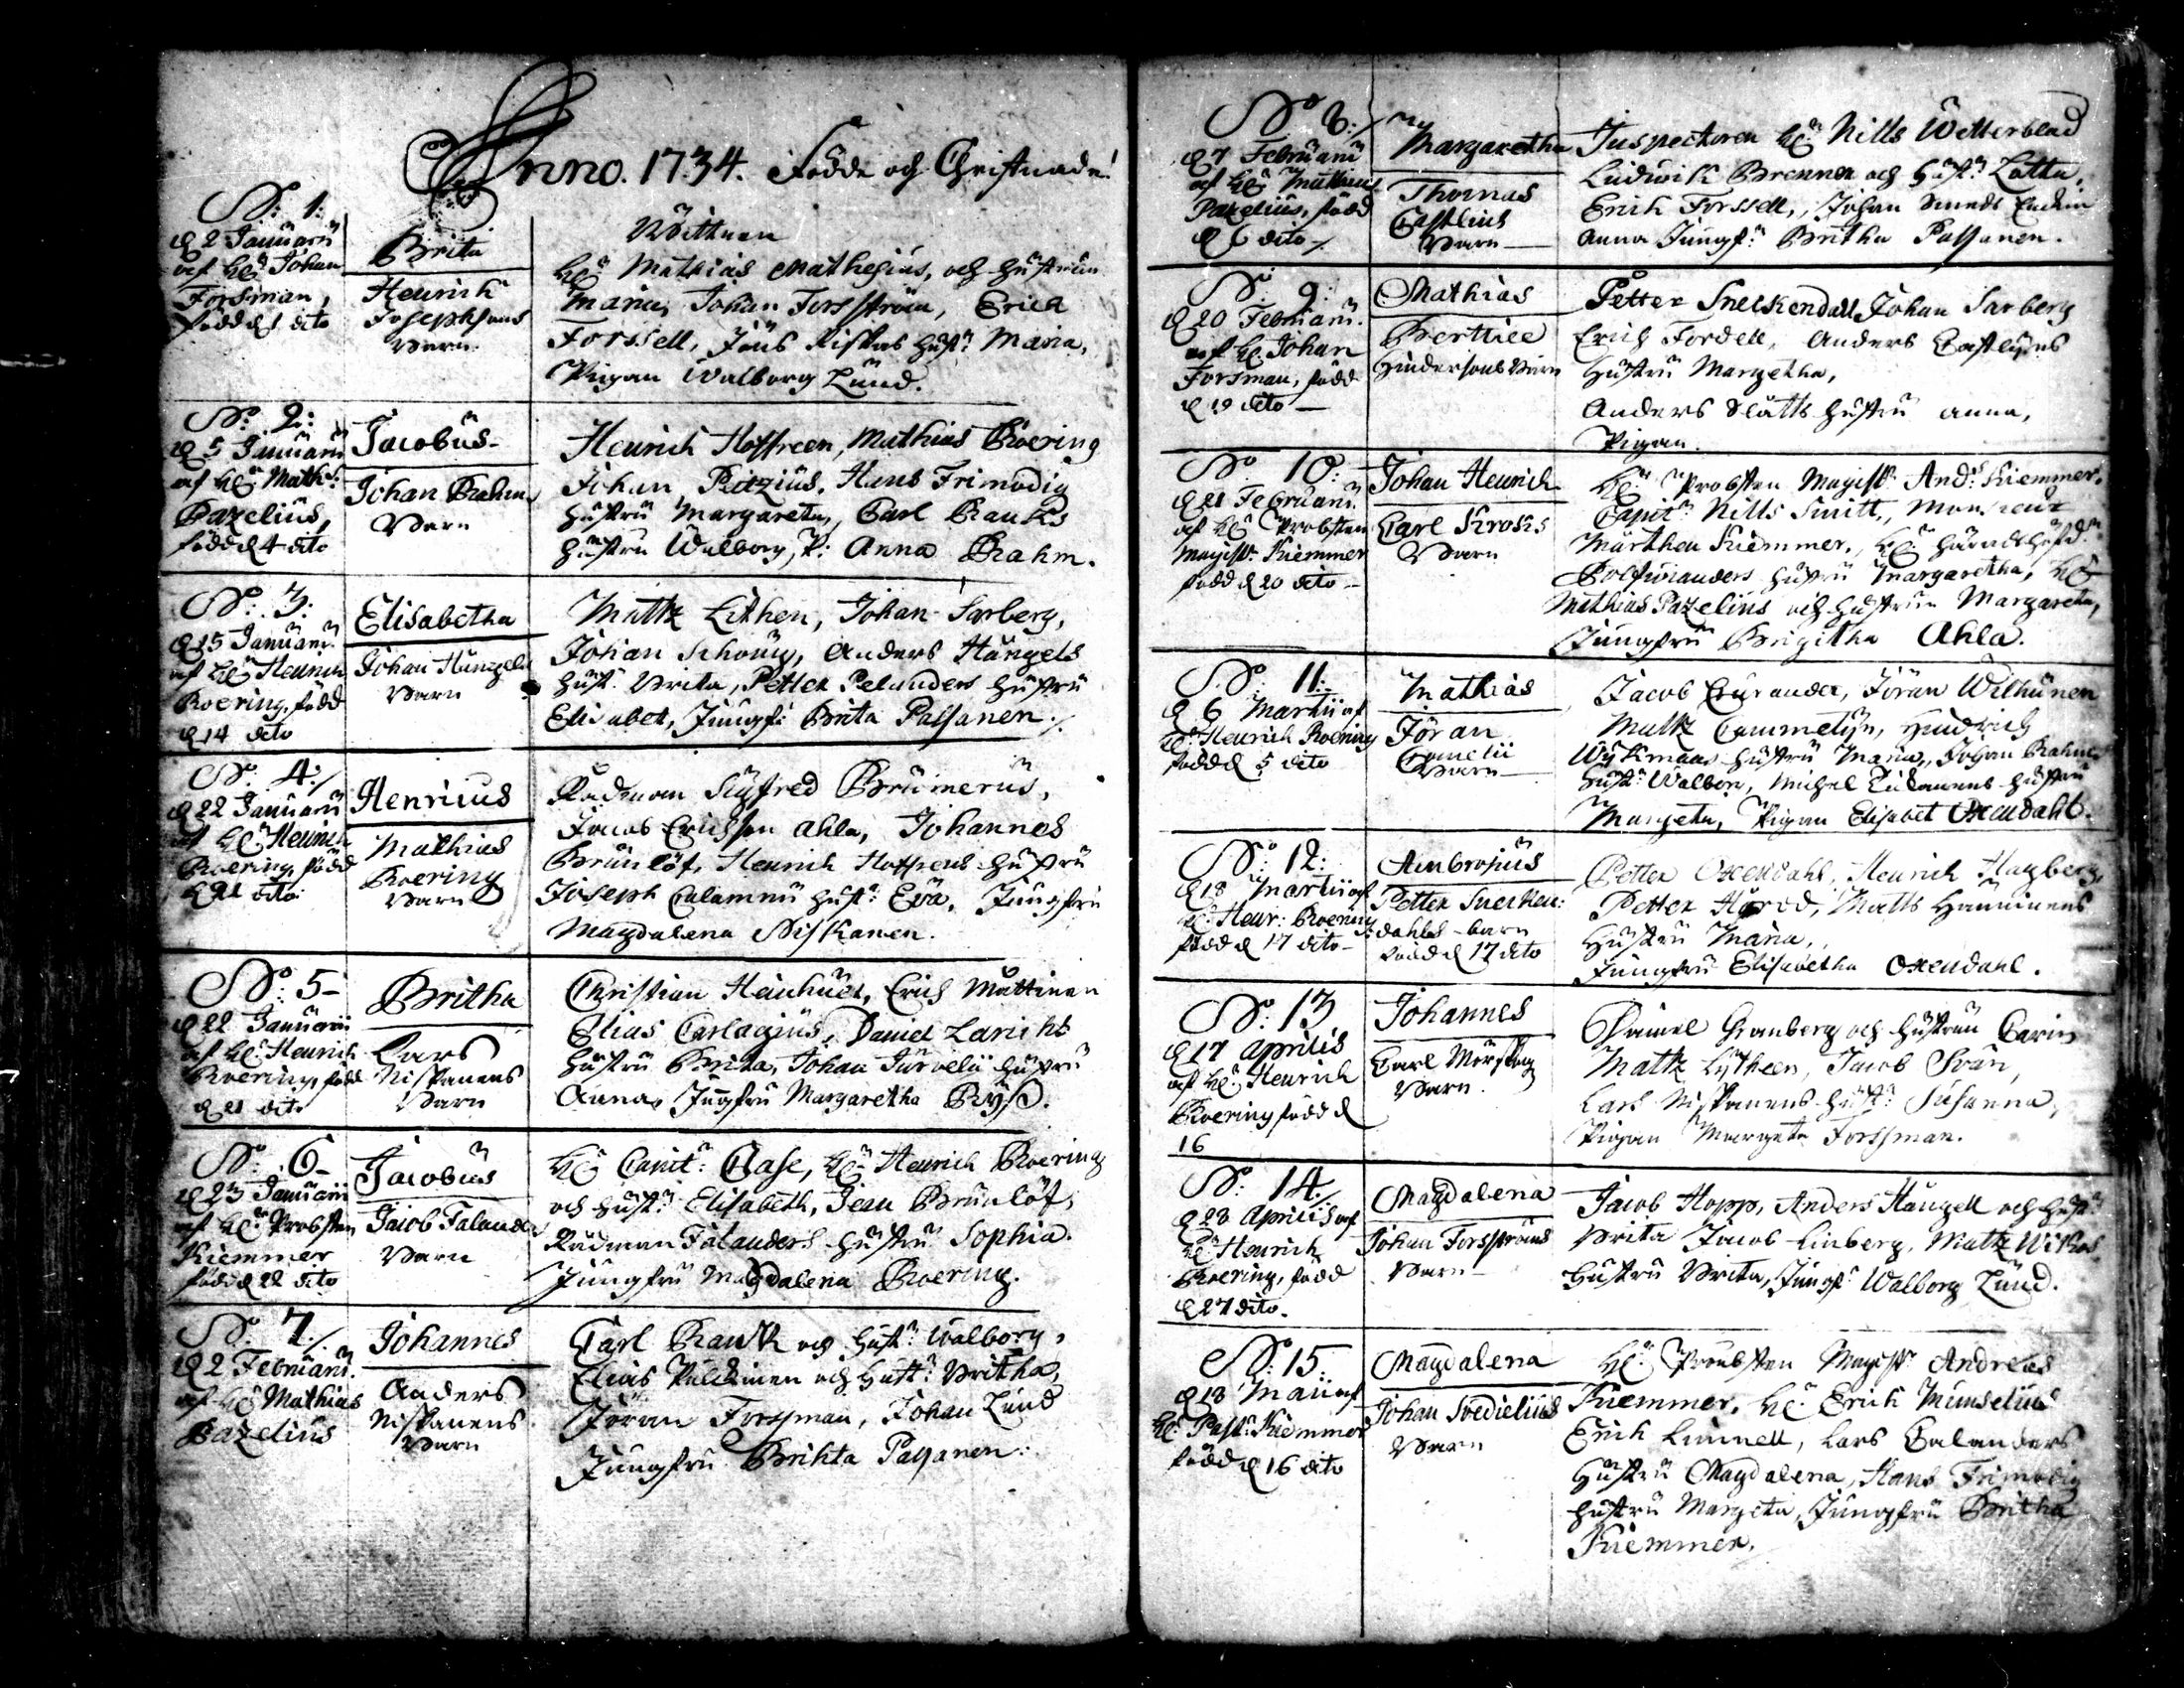 Anno. 1734. Födde och Christnade!
No: 1:
d 2 Januarii
af H: Johan
Forsman,
född d 1 dito
Brita
Henrich
Josephsons
Barn
Wittnen
H: Mathias Mathesius, och hustrun
Maria, Johan Forsström, Erich
Forssell, Jöns Hust: Maria,
Pigan Walborg Lund.
No: 2:
d 5 Januarii
af H: Math:
Pazelius,
född d 4 dito
Jacobus
Johan Brahm
Barn
Henrich Hoffreen, Mathias Roering
Johan Pitzius, Hans Frimodig
hustru Margareta, Carl Rauks
hustru Walborg, P: Anna Brahm.
No: 3:
d 15 Januarii
af H: Henrich
Roering, född
d 14 dito
Elisabetha
Johan Hangels
Barn
Mattz Lithen, Johan Sarberg,
Johan Schoug, Anders Hangels
Hust: Brita, Petter Pelanders hustru
Elisabet, Jungf: Brita Passanen.
No: 4:
d 22 Januarii
af H: Henrich
Roering, född
d 21 dito
Henricus
Mathias
Roering
Barn
Rådman Sigfred Brumerus,
Jacob Erichsson Ahla, Johannes
Brunlöf, Henrich Hoffrens hustru
Joseph Calamnii hust: Eva, Jungfru
Magdalena Niskanen.
No: 5
d 22 Januarii
af H: Henrich
Roering, född
d 21 dito
Britha
Lars
Niskanens
Barn
Christian Heinhuer, Erich Mattinen
Elias Carlagius, Daniel Larichs
hustru Brita, Johan Jurvelii hustru
Anna, Jungfru Margaretha Rysd.
No: 6
d 23 Januarii
af H: Probsten
Kiemmer
född d 22 dito
Jacobus
Jacob Falanders
Barn
H: Capit: Clase, H: Henrich Roering
och hust: Elisabeth, Jean Brunlöf,
Rådman Falanders hustru Sophia.
Jungfru Magdalena Roering.
No: 7
d 2 Februarii.
af H: Mathias
Pazelius
Johannes
Anders
Niskanens
Barn
Carl Rauk och hust: Walborg,
Elias Pulckinen och hust: Britha,
Jöran Forssman, Johan Lund
Jungfru Brihta Passanen.
No 8:
d 7 Februarii
af H: Mathias
Pazelius, född
d 6 dito
Margaretha
Thomas
Castelius
Barn
Inspectoren H: Nills Wetterblad
Ludwik Brenner och hust: Lotta,
Erich Forssell, Johan Smeds Enckia
Anna Jungf: Britha Passanen.
No: 9:
d 20 Februarii.
af H: Johan
Forsman, född
d 19 dito
Mathias
Berttill
Hindersons Barn
Petter Snelkendall Johan Sarberg
Erich Fordell, Anders Castelius
hustru Margetha,
Anders Slätts hustru Anna,
Pigan.
No 10:
d 21 Februarii
af H: Probsten
Magist: Kiemmer
född d 20 dito
Johan Henrich
Carl Kroks
Barn
H: Probsten Magist: And: Kiemmer,
Capit: Nills Smitt, Monsieur
Märthen Kiemmer, H: Häradshöfd:
hustru Margaretha, H:
Mathias Pazelius och hustrun Margareta,
Jungfru Brigitha Ahla.
No: 11:
d 6 Martii af
H: Henrich Roering
född d 5 dito
Mathias
Jöran
Barn
Jacob Jöran Wilhunen
Mattz Hindrich
Wijkmans hustru Maria, Johan Brahms
hust: Walbor, Michel hustru
Margeta, Pigan Elisabet Oxendahl.
No: 12:
d 18 Martii af
H: Henr: Roering
född d 17 dito
Ambrosius
Petter Snelken:
dahls barn
född d 17 dito
Petter Oxendahl, Henrich Hagberg,
Petter Hårod, Matts Hanninens
hustru Maria,
Jungfru Elisabetha Oxendahl.
No: 13
d 17 Aprilis
af H: Henrich
Roering född d
16
Johannes
Carl
Barn.
Daniel Granberg och hustrun Carin
Mattz Lytheen, Jacob Svan,
Lars Niskanens hust: Susanna,
Pigan Margeta Forssman.
No: 14
d 28 Aprilis af
H: Henrich
Roering, född
d 27 dito.
Magdalena
Johan Forsströms
Barn
Jacob Hopp, Anders Hangell och hust:
Brita Jacob Linberg, Mattz Wikas
hustru Brita, Jungf: Walborg Lund.
No: 15
d 18 Maii af
H: Past: Kiemmer
född d 16 dito
Magdalena
Johan Svedielius
Barn
H: Prousten Magist: Andreas
Kiemmer, H: Erich Munselius
Erich Linnell, Lars Calanders
Hustru Magdalena, Hans Frimodig
hustru Margeta, Jungfru Britha
Kiemmer.